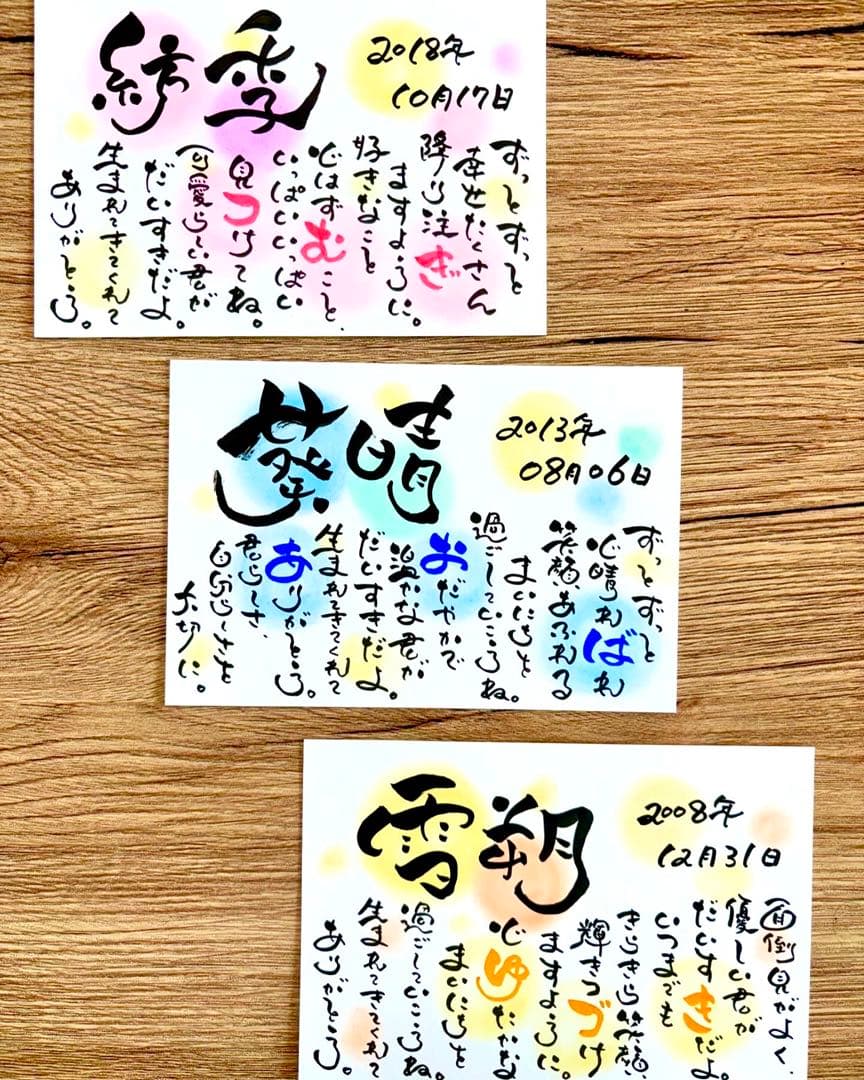 紡季
2018年
10月17日
ずっとずっと
幸せたくさん
降り注ぎ
ますように。
好きなこと
心はずむこと、
いっぱいいっぱい
見つけてね。
可愛らしい君が
だいすきだよ。
生まれてきてくれて
ありがとう。
葵晴
2013年
08月06日
ずっとずっと
心晴ればれ
笑顔あふれる
まいにちを
過ごしていこうね。
おだやかで
温かな君が
だいすきだよ。
生まれてきてくれて
ありがとう。
君らしさ、
自分らしさを
大切に。
雪朔
2008年
12月31日
面倒見がよく、
優しい君が
だいすきだよ。
いつまでも
きらきら笑顔、
輝きつづけ
ますように。
心ゆたかな
まいにちを
過ごしていこうね。
生まれてきてくれて
ありがとう。